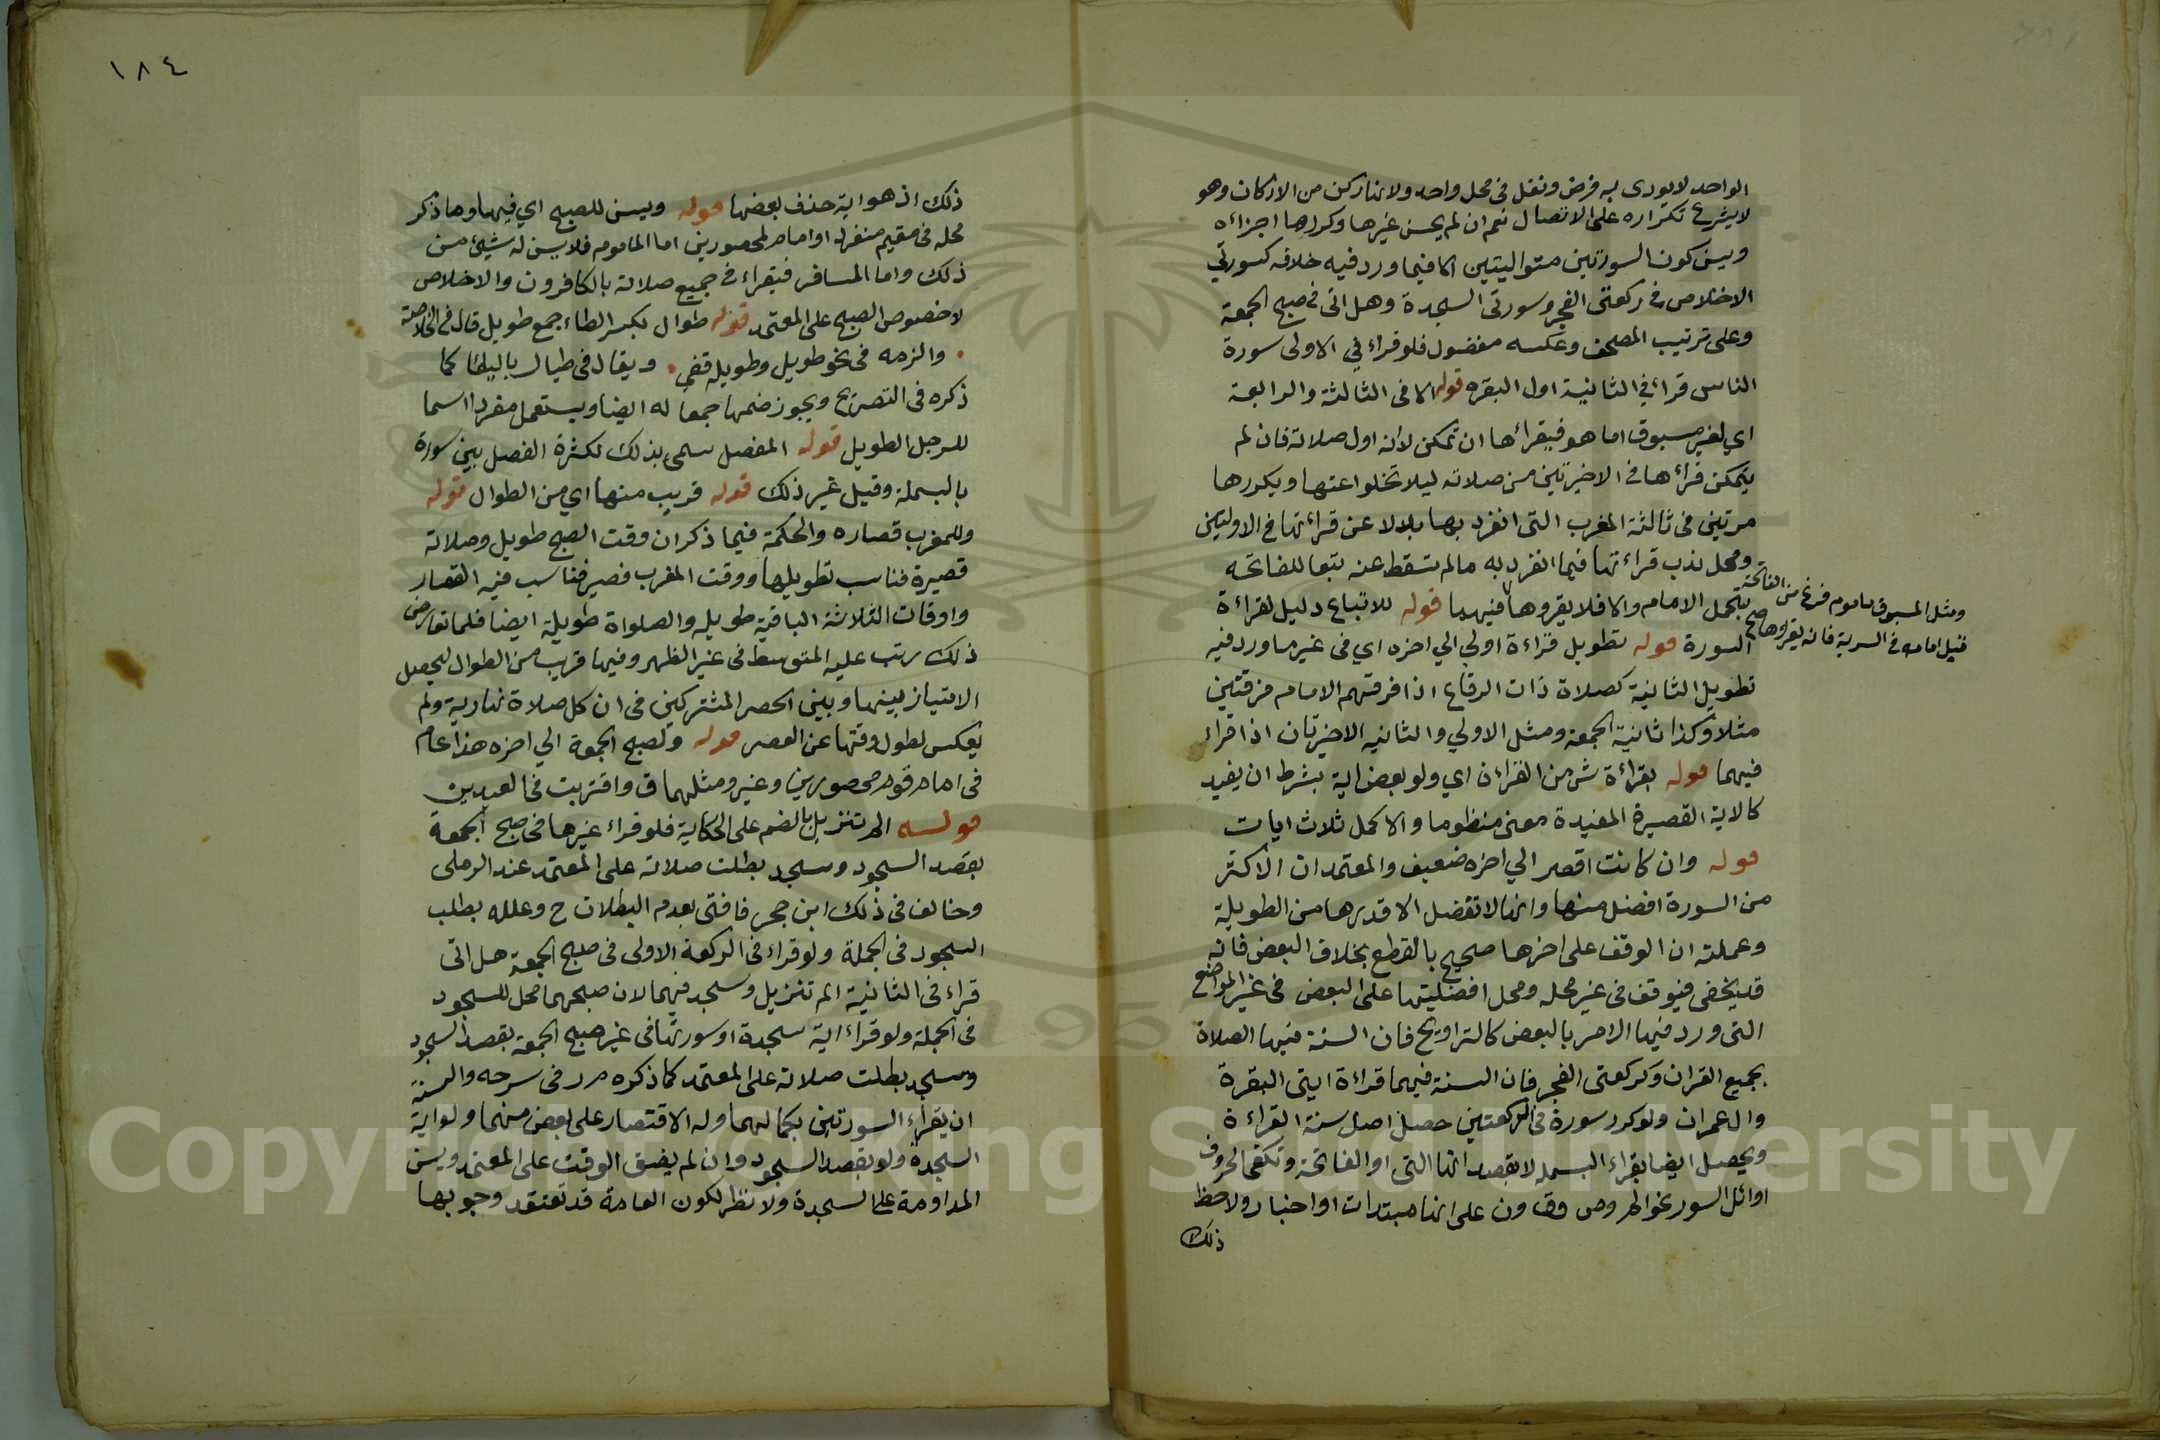 الواحد لا يودى به فرض ونفل فى محل واحد ولانها ركن من الاركان وهو
لا يشرع تكراره على الاتصال نعم ان لم يحسن غيرها وكررها اجزاءه
ويسن كون السورتين متواليتين الا فيما ورد فيه خلافه كسورتي
الاخلاص في ركعتى الفجر وسورتى السجدة وهل اتى في صبح الجمعة
وعلى ترتيب المصحف وعكسه مفضول فلو قراء في الاولى سورة
الناس قراء في الثانية اول البقره قوله الا فى الثالثة والرابعة
اي لغير مسبوق اما هو فيقراءها ان تمكن لانه اول صلاته فان لم
يتمكن قراءها في الاخيرتين من صلاته ليلا تخلوا عنها ويكررها
مرتين فى ثالثة المغرب التى انفرد بها بدلا عن قراءتها في الاوليتين
ومحل ندب قراءتها فيما انفرد به مالم تسقط عنه تبعا للفاتحه
بتحمل الامام والا فلا يقروها فيهما قوله للاتباع دليل لقراءة
ومثل المسبوق ماموم فرغ من الفاتحة
قبل امامه في السرية فانه يقروها صح
السورة قوله تطويل قراءة اولى الي اخره اي فى غير ما ورد فيه
تطويل الثانية كصلاة ذات الرقاع اذا فرقتهم الامام فرقتين
مثلا وكذا ثانية الجمعة ومثل الاولي والثانيه الاخيرتان اذا قراء
فيهما قوله بقراءة شى من القران اي ولو بعض اية بشرط ان يفيد
كالاية القصيرة المفيدة معنى منظوما والاكمل ثلاث ايات
قوله وان كانت اقصر الي اخره ضعيف والمعتمد ان الاكثر
من السورة افضل منها وانها لا تفضل الا قدرها من الطويلة
وعملته ان الوقف على اخرها صحيح بالقطع بخلاف البعض فانه
قد يخفى فيوقف فى غير محله ومحل افضليتها على البعض فى غير المواضع
التى ورد فيها الامر بالبعض كالتراويح فان السنة فيها الصلاة
بجميع القران وكركعتى الفجر فان السنة فيهما قراءة ايتى البقرة
وال عمران ولو كرر سورة فى الركعتين حصل اصل سنة القراءة
ويحصل ايضا بقراء البسمله لا بقصد انها التى او الفاتحة وتكفى الحروف
اوائل السور نحو الم وص وق ون على انها مبتدات او اخبار ولاحظ
ذلك
١٨٤
ذلك اذ هو اية حذف بعضها قوله ويسن للصبح اي فيها وما ذكر
محله فى مقيم منفرد او امام لمحصورين اما الماموم فلا يسن له شيئ من
ذلك واما المسافر فيقراء في جميع صلاته بالكافرون والاخلاص
لا خصوص الصبح على المعتمد قوله طوال بكسر الطاء جمع طويل قال فى الخلاصة
والزمه فى نحو طويل وطويلة تفى ويقال فى طيال باليا كما
ذكره فى التصريح ويجوز ضمها جمعا له ايضا ويستعمل مفردا اسما
للرجل الطويل قوله المفصل سمى بذلك لكثرة الفصل بين سورة
بالبسملة وقيل غير ذلك قوله قريب منها اي من الطوال قوله
وللمغرب قصاره والحكمة فيما ذكر ان وقت الصبح طويل وصلاته
قصيرة فناسب تطويلها ووقت المغرب قصير فناسب فيه القصار
واوقات الثلاثة الباقية طويله والصلواة طويلة ايضا فلما تعارض
ذلك رتب عليه المتوسط فى غير الظهر وفيها قريب من الطوال ليحصل
الامتياز بينها وبين العصر المشتركين فى ان كل صلاة نهارية ولم
يعكس لطول وقتها عن العصر قوله ولصبح الجمعة الي اخره هذا عام
فى امام قوم محصورين وغيره ومثلهما ق واقتربت في العيدين
قوله الم تنزيل بالضم على الحكاية فلو قراء غيرها فى صبح الجمعة
بقصد السجود وسجد بطلت صلاته على المعتمد عند الرملى
وخالف فى ذلك ابن حجر فافتى بعدم البطلان ح وعلله بطلب
السجود فى الجملة ولو قراء فى الركعة الاولى فى صبح الجمعة هل اتى
قراء فى الثانية الم تنزيل وسجد فيهما لان صبحهما محل للسجود
فى الجملة ولو قراء اية سجدة او سورتها فى غير صبح الجمعة بقصد السجود
وسجد بطلت صلاته على المعتمد كما ذكره م ر فى شرحه والسنة
ان يقراء السورتين بكمالهما وله الاقتصار على بعض منهما ولو اية
السجدة ولو بقصد السجود وان لم يضق الوقت على المعتمد ويسن
المداومة على السجدة ولا نظر لكون العامة قد تعتقد وجوبها
Copyright © King Saud University
1957